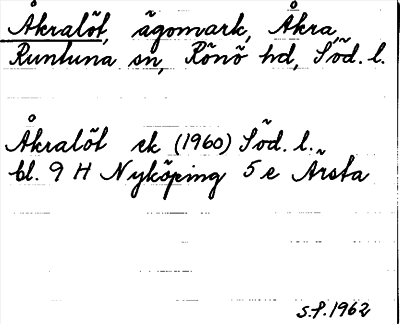 Åkralöt, ägomark, Åkra,
Runtuna sn, Rönö hd, Söd. l.
Åkralöt ek (1960) Söd. l.
bl. 9 H Nyköping 5 e Årsta
S.P. 1962